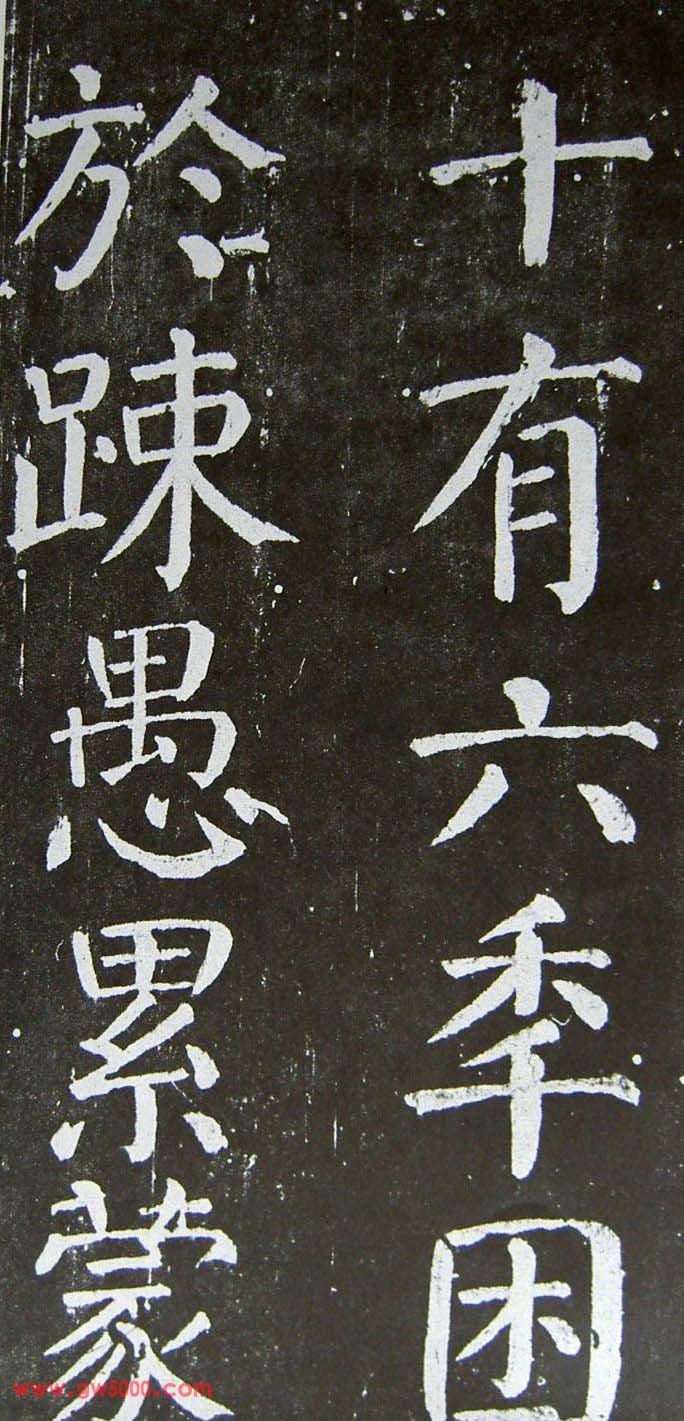 十有六秊困
於踈愚累蒙
www.gw5000.com